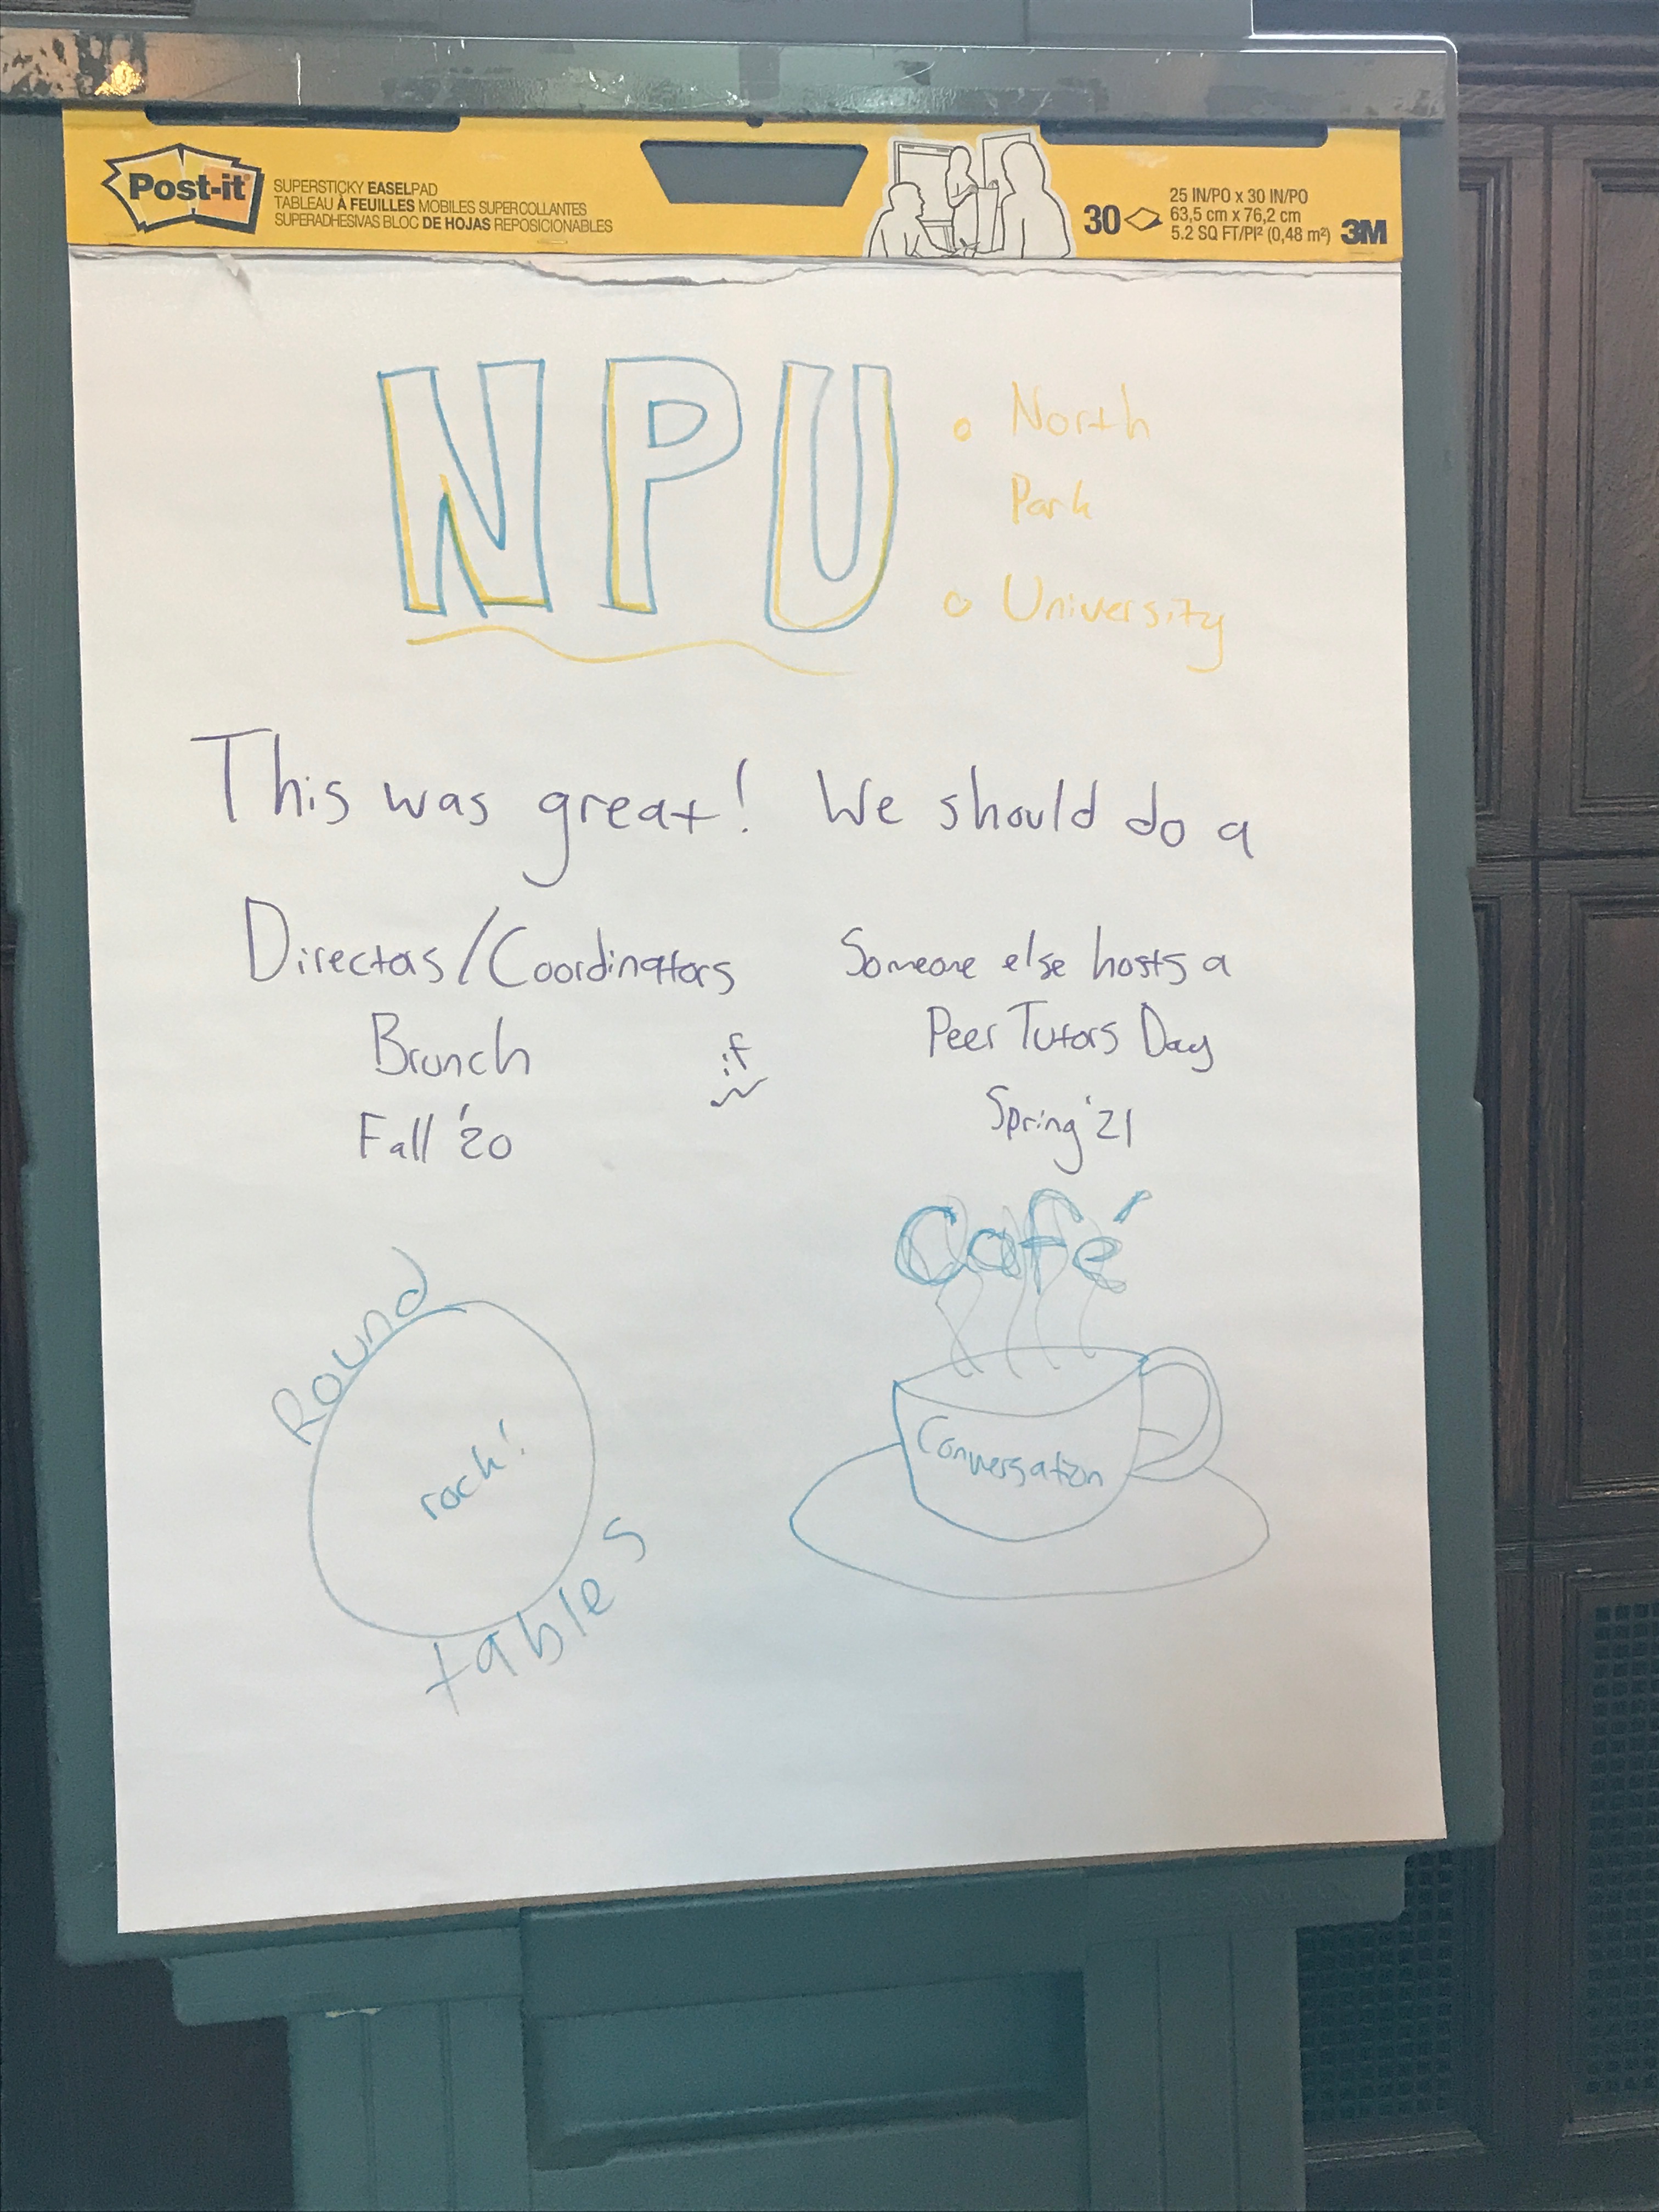 Post-it
SUPERSTICKY EASELPAD
TABLEAU À FEUILLES MOBILES SUPERCOLLANTES
SUPERADHESIVAS BLOC DE HOJAS REPOSICIONABLES
30
25 IN/PO x 30 IN/PO
63,5 cm x 76,2 cm
5.2 SQ FT/PI² (0,48 m²)
3M
NPU
North
Park
University
This was great! We should do a
Directors/Coordinators
Brunch
Fall '20
if
Someone else hosts a
Peer Tutors Day
Spring '21
Round
rock!
tables
Café
Conversation